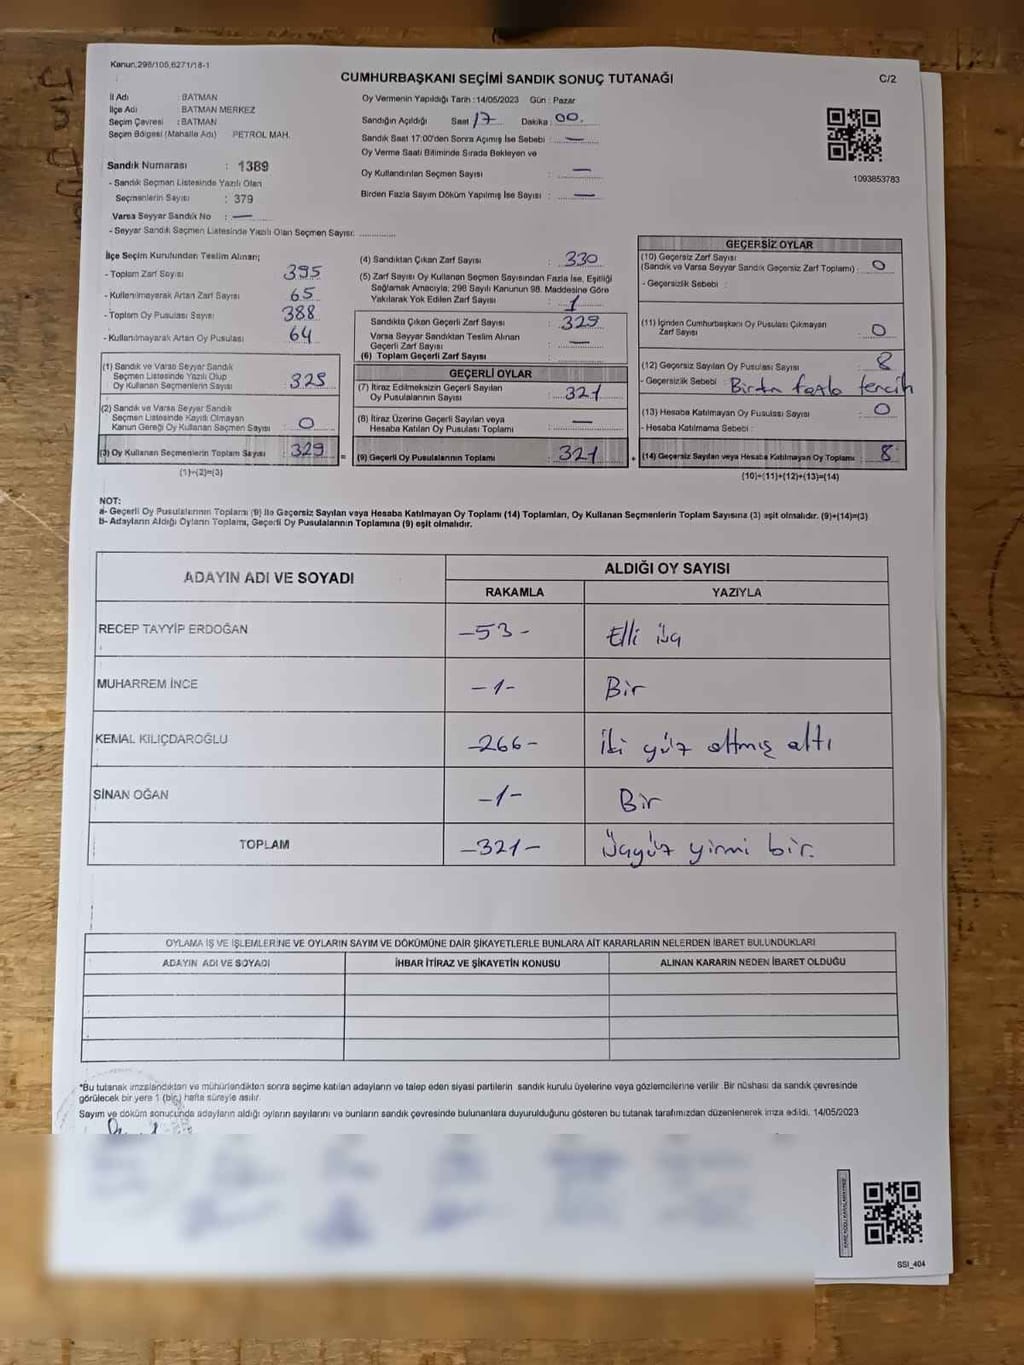 Kanun.298/105,6271/18-1
CUMHURBAŞKANI SEÇİMİ SANDIK SONUÇ TUTANAĞI
C/2
İl Adı : BATMAN
İlçe Adı : BATMAN MERKEZ
Seçim Çevresi : BATMAN
Seçim Bölgesi (Mahalle Adı) PETROL MAH.
Oy Vermenin Yapıldığı Tarih : 14/05/2023 Gün : Pazar
Sandığın Açıldığı Saat 17 Dakika : 00.
Sandık Saat 17:00'den Sonra Açımış İse Sebebi : —
Oy Verme Saati Bitiminde Sırada Bekleyen ve
Oy Kullandırılan Seçmen Sayısı : —
Birden Fazla Sayım Döküm Yapılmış İse Sayısı : —
1093853783
Sandık Numarası : 1389
- Sandık Seçmen Listesinde Yazılı Olan
Seçmenlerin Sayısı : 379
Varsa Seyyar Sandık No : —
- Seyyar Sandık Seçmen Listesinde Yazılı Olan Seçmen Sayısı: ..............
İlçe Seçim Kurulundan Teslim Alınan;
- Toplam Zarf Sayısı 395
- Kullanılmayarak Artan Zarf Sayısı : 65
- Toplam Oy Pusulası Sayısı : 388
- Kullanılmayarak Artan Oy Pusulası : 64
(1) Sandık ve Varsa Seyyar Sandık
Seçmen Listesinde Yazılı Olup
Oy Kullanan Seçmenlerin Sayısı : 329
(2) Sandık ve Varsa Seyyar Sandık
Seçmen Listesinde Kayıtlı Olmayan
Kanun Gereği Oy Kullanan Seçmen Sayısı : 0
(3) Oy Kullanan Seçmenlerin Toplam Sayısı : 329
(1)+(2)=(3)
(4) Sandıktan Çıkan Zarf Sayısı : 330
(5) Zarf Sayısı Oy Kullanan Seçmen Sayısından Fazla İse, Eşitliği
Sağlamak Amacıyla; 298 Sayılı Kanunun 98. Maddesine Göre
Yakılarak Yok Edilen Zarf Sayısı : 1
Sandıkta Çıkan Geçerli Zarf Sayısı : 329
Varsa Seyyar Sandıktan Teslim Alınan
Geçerli Zarf Sayısı : —
(6) Toplam Geçerli Zarf Sayısı :
GEÇERLİ OYLAR
(7) İtiraz Edilmeksizin Geçerli Sayılan
Oy Pusulalarının Sayısı : 321
(8) İtiraz Üzerine Geçerli Sayılan veya
Hesaba Katılan Oy Pusulası Toplamı : —
= (9) Geçerli Oy Pusulalarının Toplamı : 321
GEÇERSİZ OYLAR
(10) Geçersiz Zarf Sayısı
(Sandık ve Varsa Seyyar Sandık Geçersiz Zarf Toplamı) : 0
- Geçersizlik Sebebi :
(11) İçinden Cumhurbaşkanı Oy Pusulası Çıkmayan
Zarf Sayısı : 0
(12) Geçersiz Sayılan Oy Pusulası Sayısı : 8
- Geçersizlik Sebebi : Birden fazla tercih
(13) Hesaba Katılmayan Oy Pusulası Sayısı : 0
- Hesaba Katılmama Sebebi :
+ (14) Geçersiz Sayılan veya Hesaba Katılmayan Oy Toplamı : 8
(10)+(11)+(12)+(13)=(14)
NOT:
a- Geçerli Oy Pusulalarının Toplamı (9) ile Geçersiz Sayılan veya Hesaba Katılmayan Oy Toplamı (14) Toplamları, Oy Kullanan Seçmenlerin Toplam Sayısına (3) eşit olmalıdır. (9)+(14)=(3)
b- Adayların Aldığı Oyların Toplamı, Geçerli Oy Pusulalarının Toplamına (9) eşit olmalıdır.
ADAYIN ADI VE SOYADI
ALDIĞI OY SAYISI
RAKAMLA YAZIYLA
RECEP TAYYİP ERDOĞAN -53- Elli üç
MUHARREM İNCE -1- Bir
KEMAL KILIÇDAROĞLU -266- İki yüz altmış altı
SİNAN OĞAN -1- Bir
TOPLAM -321- Üçyüz yirmi bir.
OYLAMA İŞ VE İŞLEMLERİNE VE OYLARIN SAYIM VE DÖKÜMÜNE DAİR ŞİKAYETLERLE BUNLARA AİT KARARLARIN NELERDEN İBARET BULUNDUKLARI
ADAYIN ADI VE SOYADI İHBAR İTİRAZ VE ŞİKAYETİN KONUSU ALINAN KARARIN NEDEN İBARET OLDUĞU
*Bu tutanak imzalandıktan ve mühürlendikten sonra seçime katılan adayların ve talep eden siyasi partilerin sandık kurulu üyelerine veya gözlemcilerine verilir. Bir nüshası da sandık çevresinde
görülecek bir yere 1 (bir) hafta süreyle asılır.
Sayım ve döküm sonucunda adayların aldığı oyların sayılarını ve bunların sandık çevresinde bulunanlara duyurulduğunu gösteren bu tutanak tarafımızdan düzenlenerek imza edildi. 14/05/2023
SSI_404